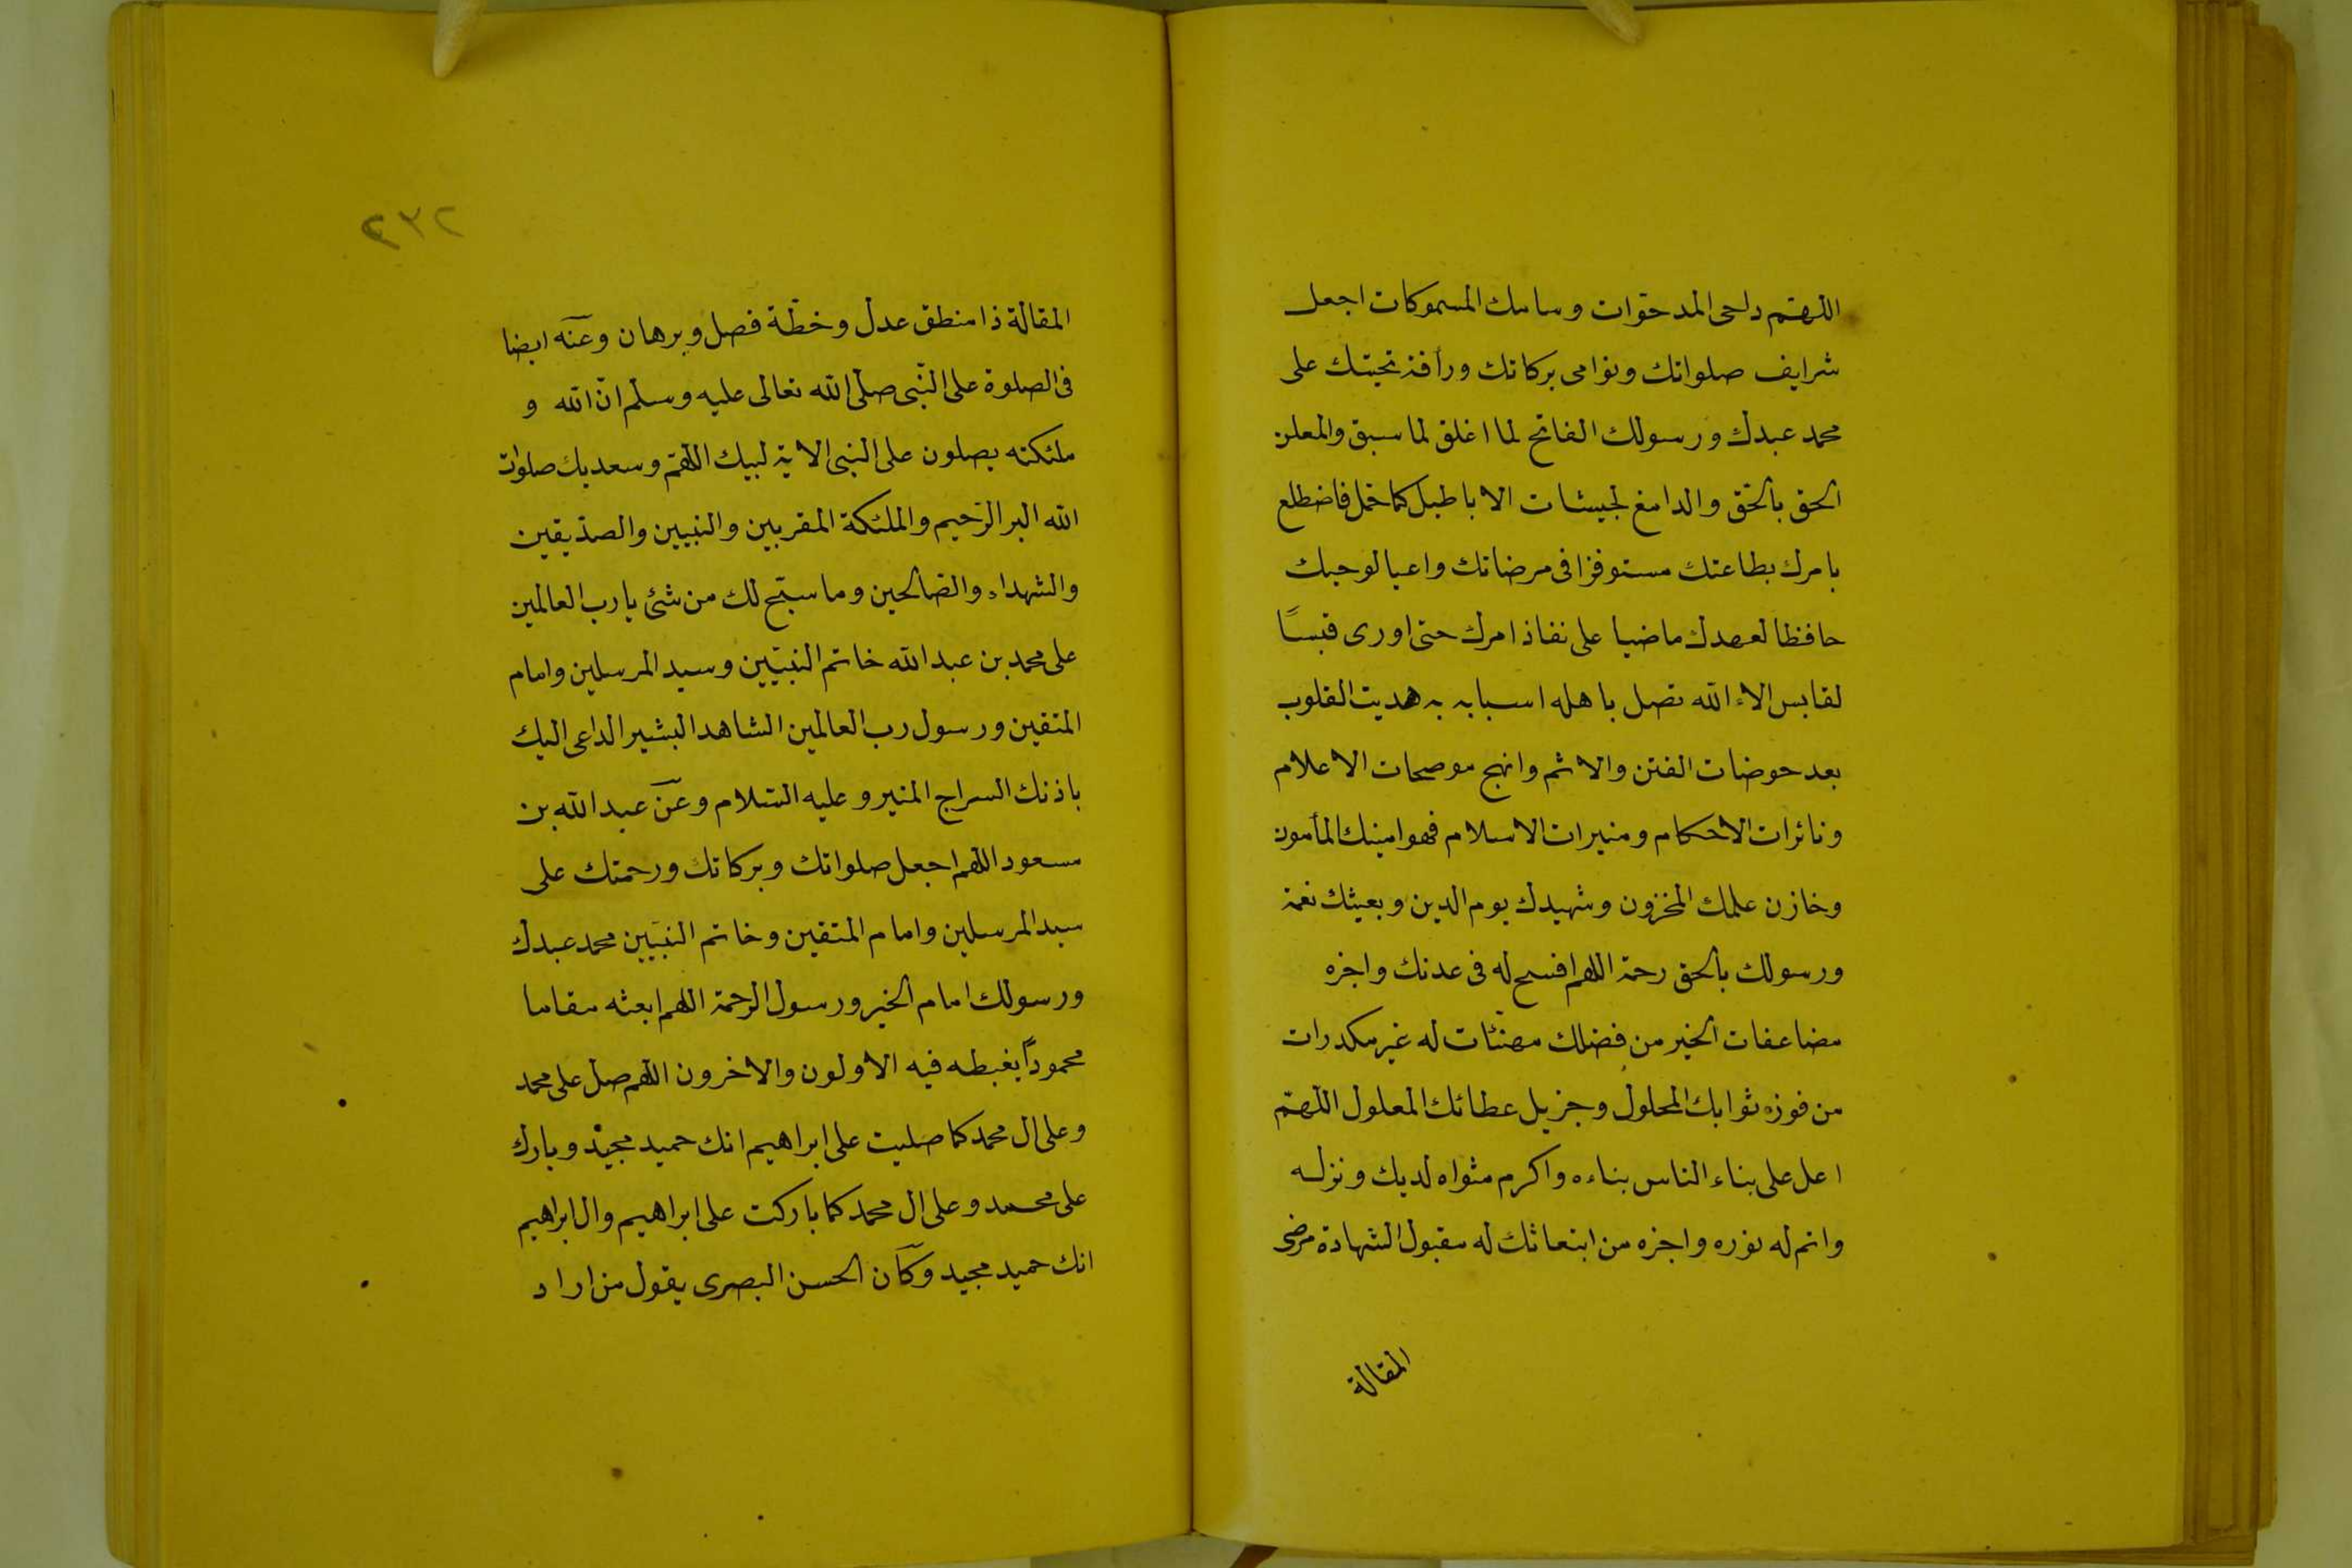 اللهم داحى المدحوات وسامك المسموكات اجعل
شرايف صلواتك ونوامى بركاتك ورأفة تحيتك على
محمد عبدك ورسولك الفاتح لما اغلق لما سبق والمعلن
الحق بالحق والدامغ لجيشات الاباطيل كما حمل فاضطلع
بامرك بطاعتك مستوفزا فى مرضاتك واعيا لوحيك
حافظا لعهدك ماضيا على نفاذ امرك حتى اورى قبسًا
لقابس الاء الله تصل باهله اسبابه به هديت القلوب
بعد خوضات الفتن والاثم وانهج موضحات الاعلام
ونائرات الاحكام ومنيرات الاسلام فهو امينك المأمون
وخازن علمك المخزون وشهيدك يوم الدين وبعيثك نعمة
ورسولك بالحق رحمة اللهم افسح له فى عدنك واجزه
مضاعفات الخير من فضلك مهنّئات له غير مكدرات
من فوز ثوابك المحلول وجزيل عطائك المعلول اللهمّ
اعل على بناء الناس بناءه واكرم مثواه لديك ونزله
واتم له نوره واجزه من ابتعاثك له مقبول الشهادة مرضى
المقالة
٢٣٢
المقالة ذا منطق عدل وخطّة فصل وبرهان وعنه ايضا
فى الصلوة على النّبى صلّى الله تعالى عليه وسلّم انّ الله و
ملئكته يصلون على النبى الاية لبيك اللهمّ وسعديك صلوات
الله البر الرّحيم والملئكة المقربين والنبيين والصدّيقين
والشهداء والصّالحين وما سبّح لك من شئ يا رب العالمين
على محمد بن عبد الله خاتم النبيّين وسيد المرسلين وامام
المتقين ورسول رب العالمين الشاهد البشير الداعى اليك
باذنك السراج المنير وعليه السّلام وعن عبد الله بن
مسعود اللهم اجعل صلواتك وبركاتك ورحمتك على
سيد المرسلين وامام المتقين وخاتم النبيّين محمد عبدك
ورسولك امام الخير ورسول الرحمة اللهم ابعثه مقاما
محمودًا يغبطه فيه الاولون والاخرون اللهم صل على محمد
وعلى ال محمد كما صليت على ابراهيم انك حميد مجيد وبارك
على محمد وعلى ال محمد كما باركت على ابراهيم وال ابراهيم
انك حميد مجيد وكان الحسن البصرى يقول من اراد